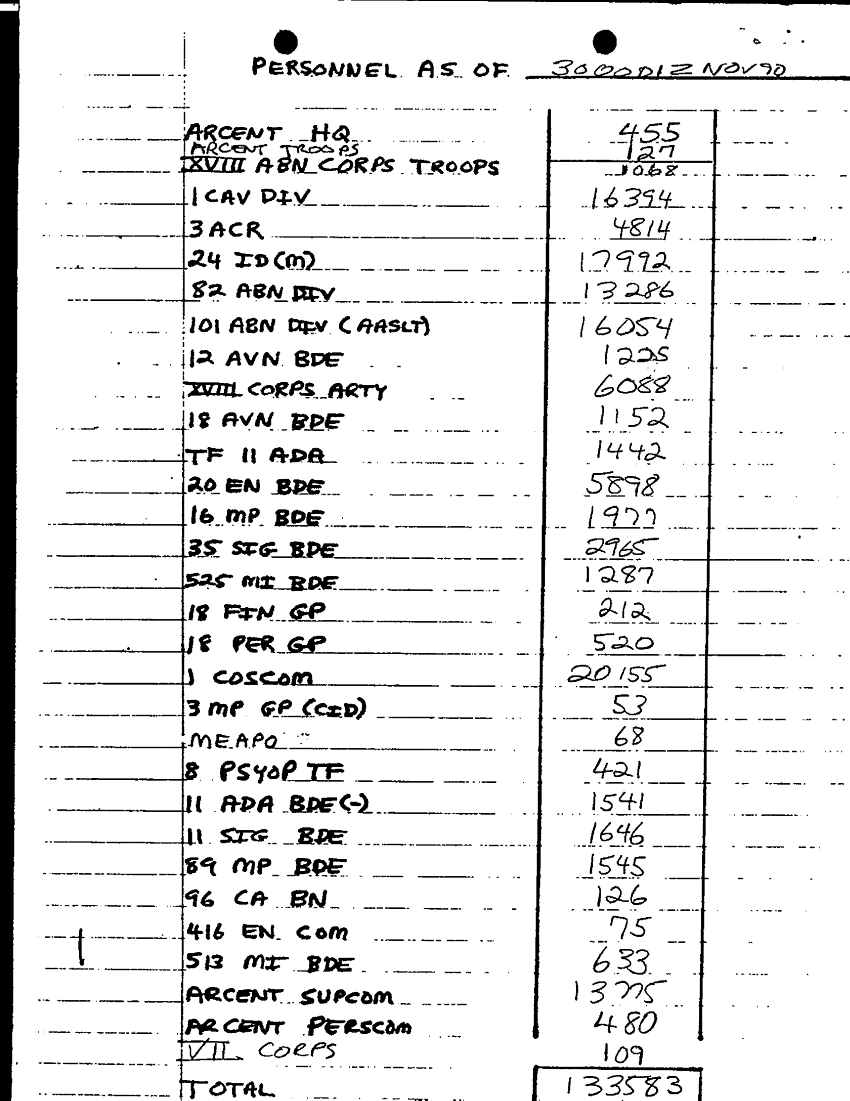 PERSONNEL AS OF 300001Z NOV90
ARCENT HQ 455
ARCENT TROOPS 127
XVIII ABN CORPS TROOPS 1068
1 CAV DIV 16394
3 ACR 4814
24 ID(M) 17992
82 ABN DIV 13286
101 ABN DIV (AASLT) 16054
12 AVN BDE 1225
XVIII CORPS ARTY 6088
18 AVN BDE 1152
TF 11 ADA 1442
20 EN BDE 5898
16 MP BDE 1977
35 SIG BDE 2965
525 MI BDE 1287
18 FIN GP 212
18 PER GP 520
1 COSCOM 20155
3 MP GP (CID) 53
MEAPO 68
8 PSYOP TF 421
11 ADA BDE(-) 1541
11 SIG BDE 1646
89 MP BDE 1545
96 CA BN 126
416 EN COM 75
513 MI BDE 633
ARCENT SUPCOM 13775
ARCENT PERSCOM 480
VII CORPS 109
TOTAL 133583